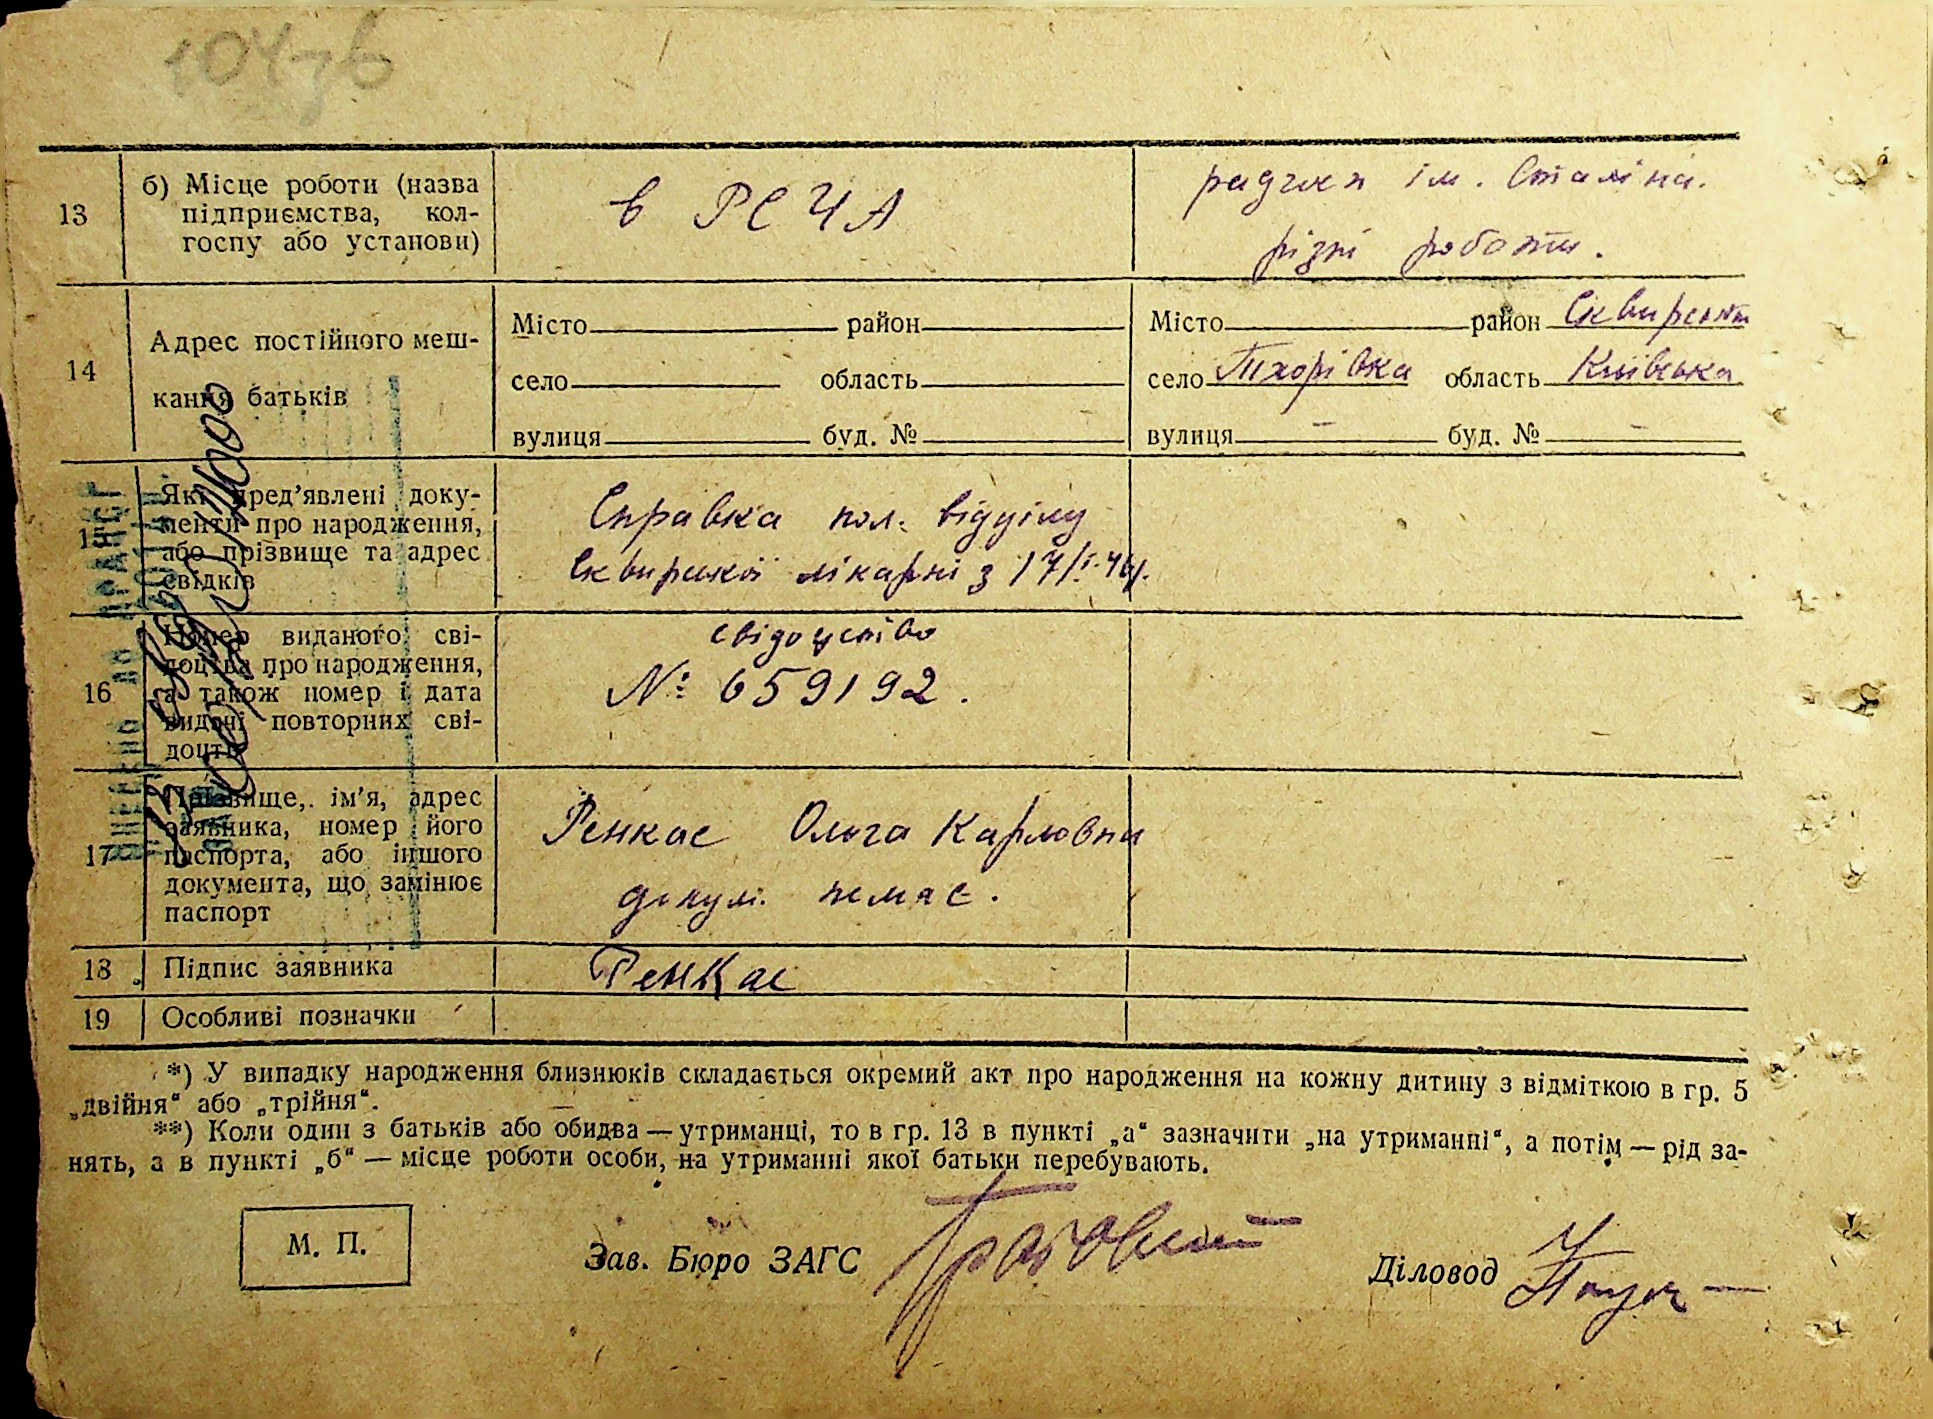 104зв
13
б) Місце роботи (назва
підприємства, кол-
госпу або установи)
в РСЧА
радгосп ім. Сталіна.
різні роботи.
14
Адрес постійного меш-
кання батьків
Місто район
село область
вулиця буд. №
Місто район Сквирськ
село Тхорівка область Київська
вулиця – буд. № –
15
Які пред’явлені доку-
менти про народження,
або прізвище та адрес
свідків
Справка пол. відділу
Сквирської лікарні з 17/I-41р.
16
Номер виданого сві-
доцтва про народження,
а також номер і дата
видачі повторних сві-
доцтв
свідоцтво
№ 659192.
17
Прізвище, ім’я, адрес
заявника, номер його
паспорта, або іншого
документа, що замінює
паспорт
Ренкас Ольга Карловна
докум. немає.
18
Підпис заявника
Ренкас
19
Особливі позначки
*) У випадку народження близнюків складається окремий акт про народження на кожну дитину з відміткою в гр. 5
„двійня“ або „трійня“.
**) Коли один з батьків або обидва — утриманці, то в гр. 13 в пункті „а“ зазначити „на утриманні“, а потім — рід за-
нять, а в пункті „б“ — місце роботи особи, на утриманні якої батьки перебувають.
М. П.
Зав. Бюро ЗАГС
Діловод